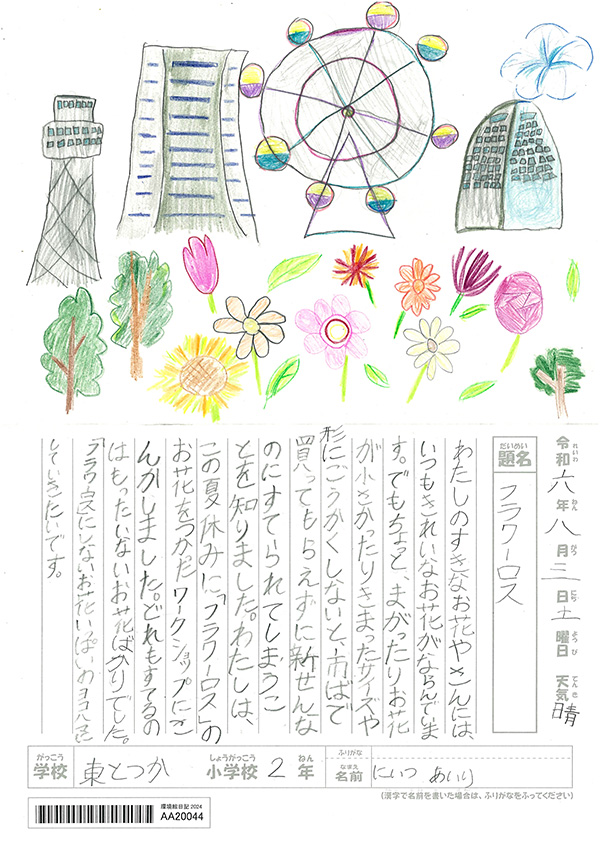 令和六年八月三日土曜日 天気晴
れいわ ねん がつ にち ようび てんき
だいめい
題名 フラワーロス
わたしのすきなお花やさんには、
いつもきれいなお花がならんでいま
す。でもちょっと、まがったりお花
が小さかったりきまったサイズや
形にごうかくしないと、市ばで
買ってもらえずに新せんな
のにすてられてしまうこ
とを知りました。わたしは、
この夏休みに「フラワーロス」の
お花をつかだワークショップにさ
んかしました。どれもすてるの
はもったいないお花ばかりでした。
にしないお花いっぱいのヨコハマ
していきたいです。
がっこう しょうがっこう ねん ふりがな
学校 東とつか 小学校 2年 なまえ 名前 にいつ あいり
(漢字で名前を書いた場合は、ふりがなをふってください)
環境絵日記 2024
AA20044